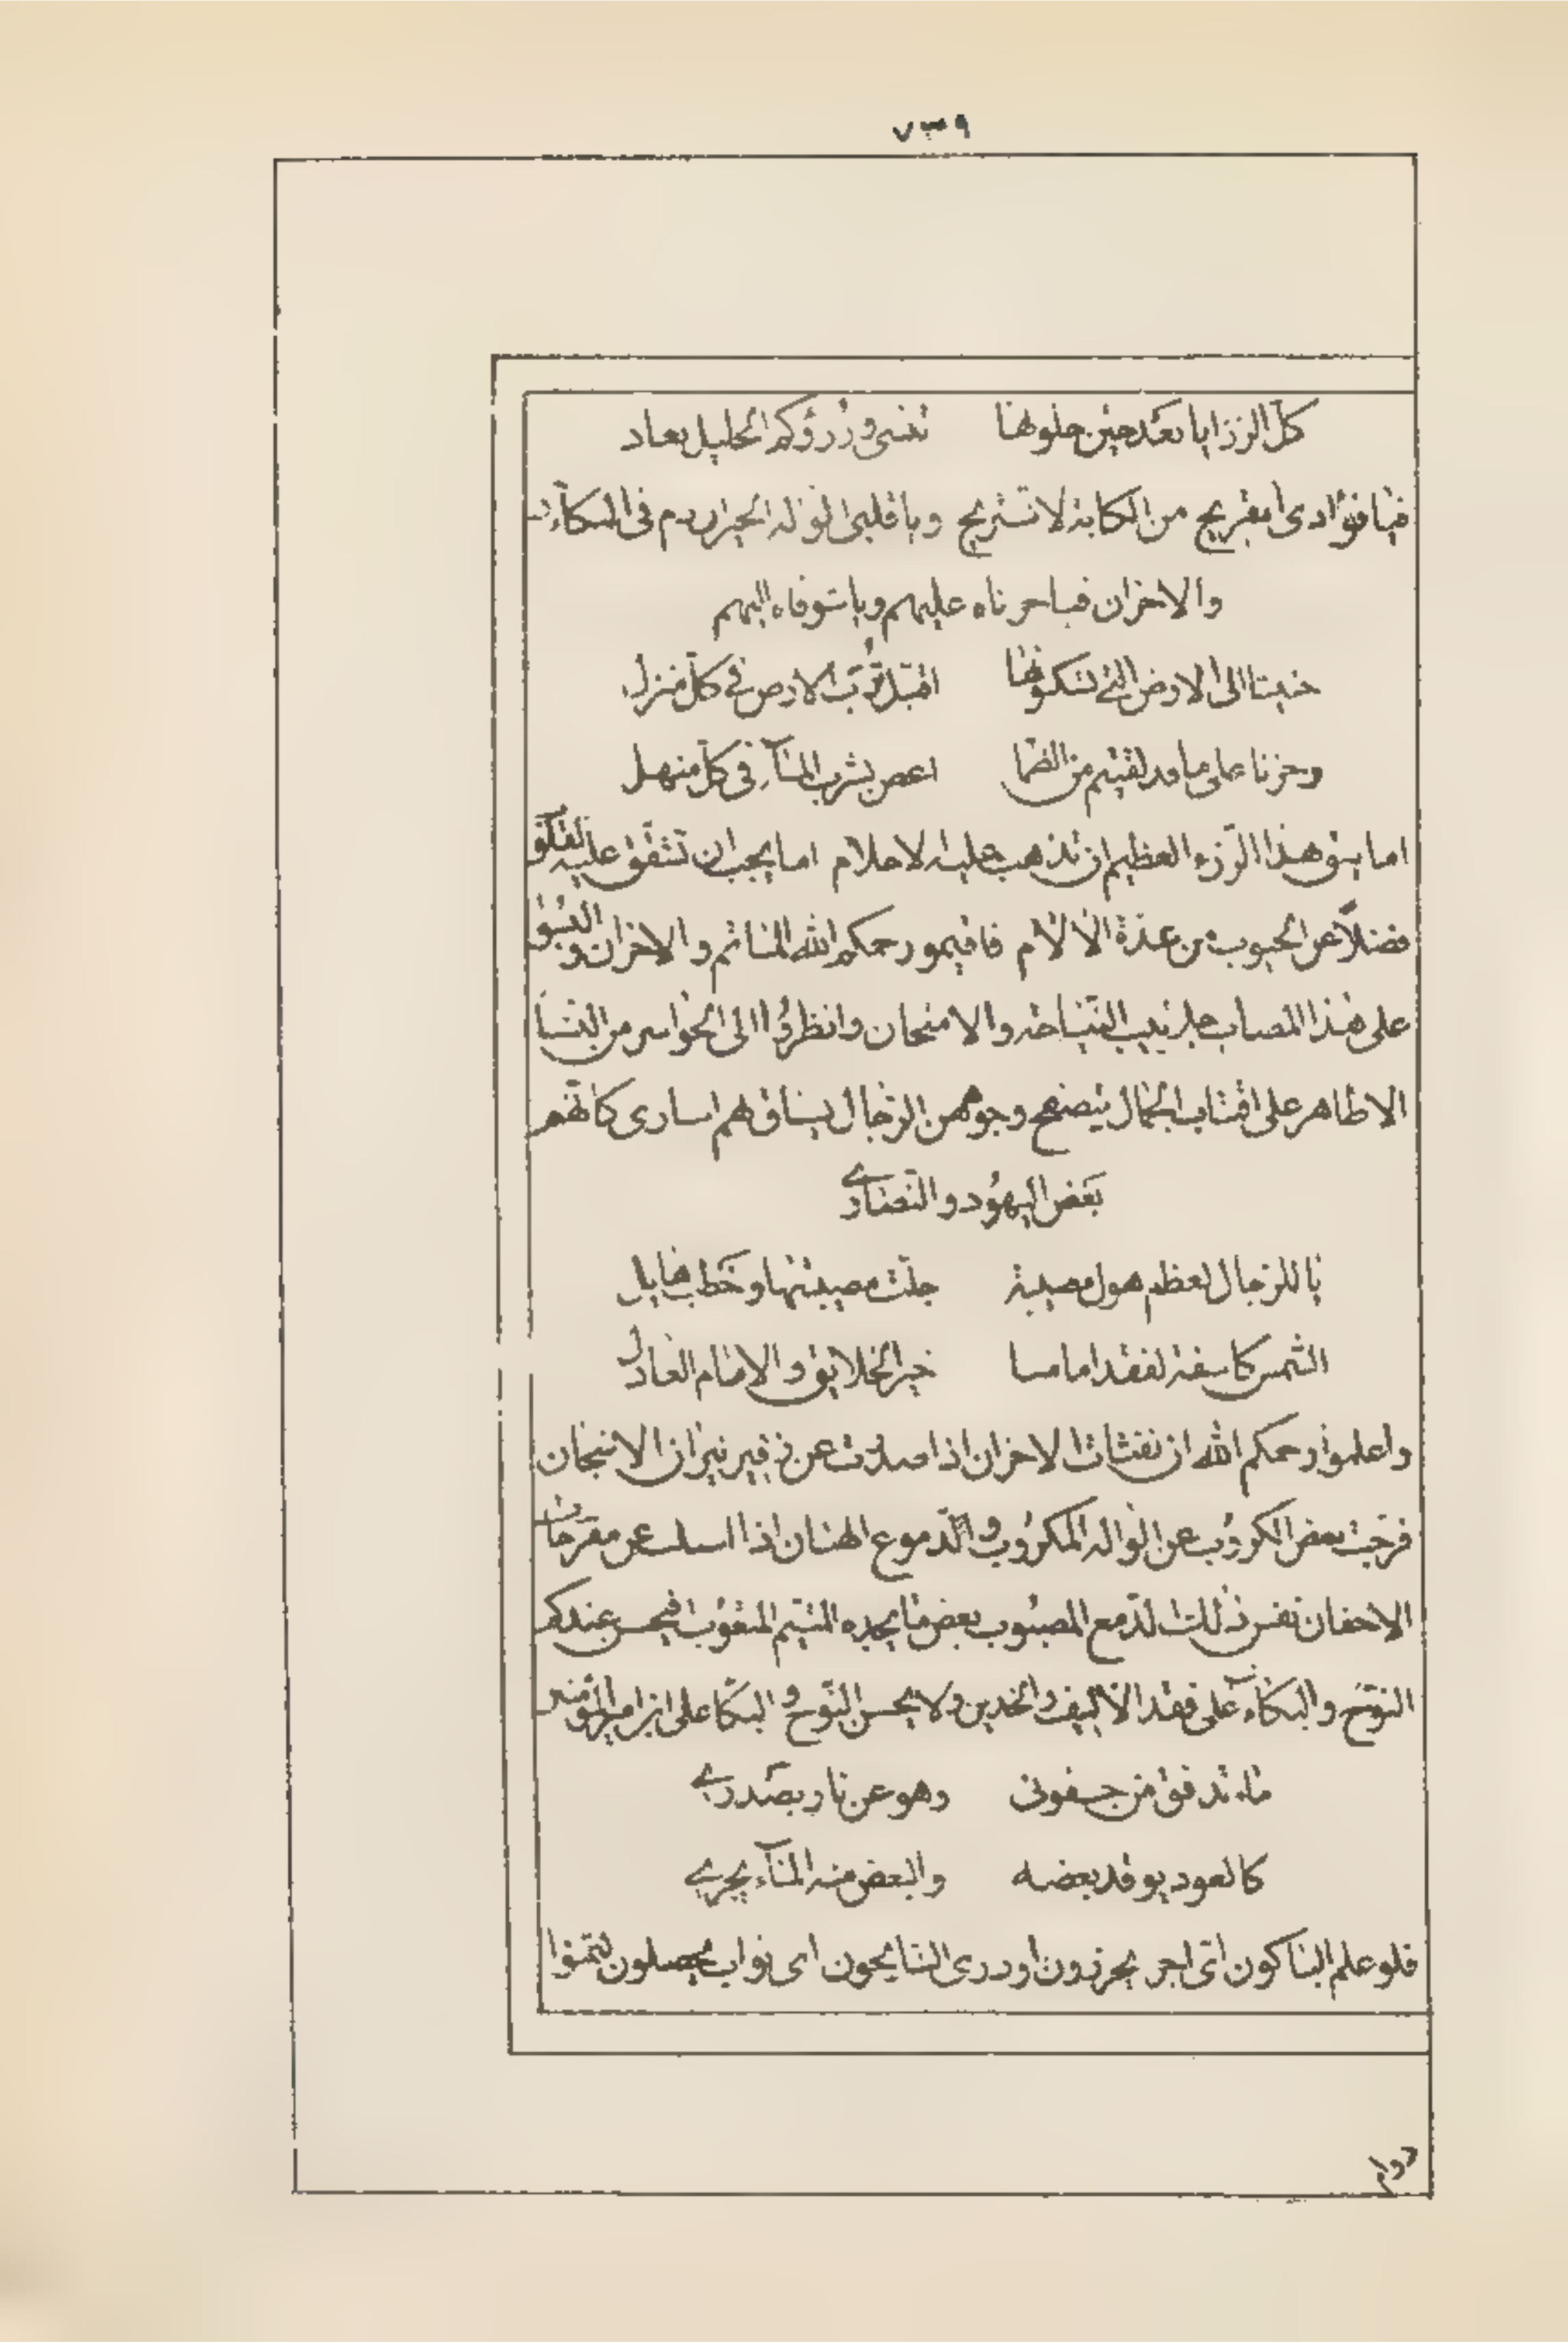 ٧٣٩
كل الرزايا بعد حين حلولها تنسى ورزؤكم الجليل يعاد
فيا فؤادى القريح من الكابة لا تستريح ويا قلبى الواله الحيران دم فى البكاء
والاحزان فيا حزناه عليهم ويا شوقاه اليهم
حنينا الى الارض التى تسكنونها اقبل ترب الارض فى كل منزل
وحزنا على ما قد لقيتم من الظما اغص بشرب الماء فى كل منهل
اما ينبغى هذا الرزء العظيم ان تذهب عليه الاحلام اما يجب ان تشقق عليه القلوب
فضلا عن الجيوب من عدة الالام فاقيمو رحمكم الله الماتم والاحزان
على هذا المصاب النياحة والامتحان وانظروا الى الحواسر من النساء
الاطاهر على اقتاب الجمال يتصفح وجوههن الرجال يساق هم اسارى كانهم
بعض اليهود والنصارى
يا للرجال لعظم هول مصيبة جلت مصيبتها وخطب هايل
الشمس كاسفة لفقد امامنا خير الخلايق والامام العادل
واعلموا رحمكم الله ان نفثات الاحزان اذا صدرت عن زفير نيران الامتحان
فرجت بعض الكروب عن الواله المكروب والدموع الهتان اذا اسبلت عن مقرحات
الاجفان نفس ذلك الدمع المصبوب بعض ما يجده المتيم المتعوب فيحسن عندكم
النوح والبكاء على فقد الاليف والخدين ولا يحسن النوح والبكا على ابن امير المؤمنين
ماء تدفق من جفونى وهو عن نار بصدرى
كالعود يوقد بعضه والبعض منه الماء يجرى
فلو علم الباكون اى اجر يحرزون او درى النايحون اى ثواب يحصلون لتمنوا
دوام